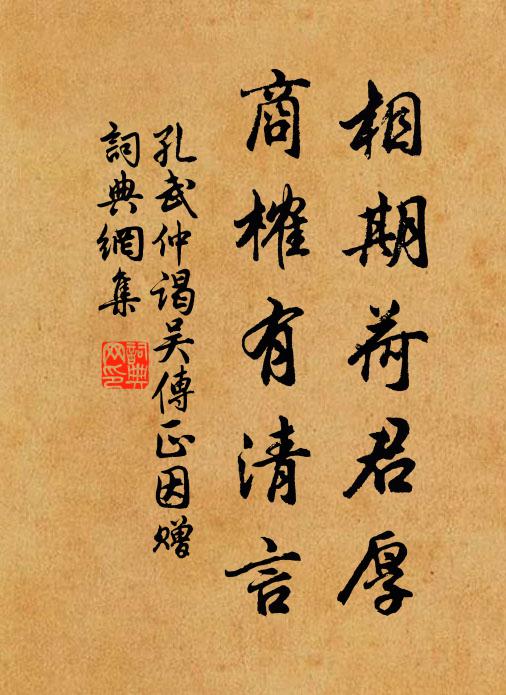 相期荷君厚
商榷有清言
孔武仲謁吴傅正因赠
詞典網集
詞典
网印